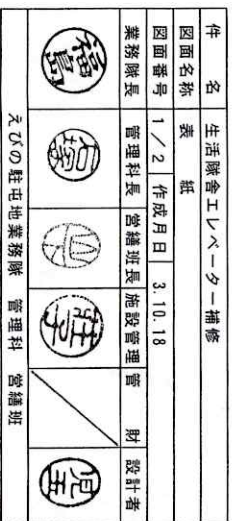 件　名　生活隊舎エレベーター補修
図面名称　表　紙
図面番号　1／2　作成月日　3.10.18
業務隊長　管理科長　営繕班長　施設管理　管　財　設計者
福島　児玉
えびの駐屯地業務隊　管理科　営繕班